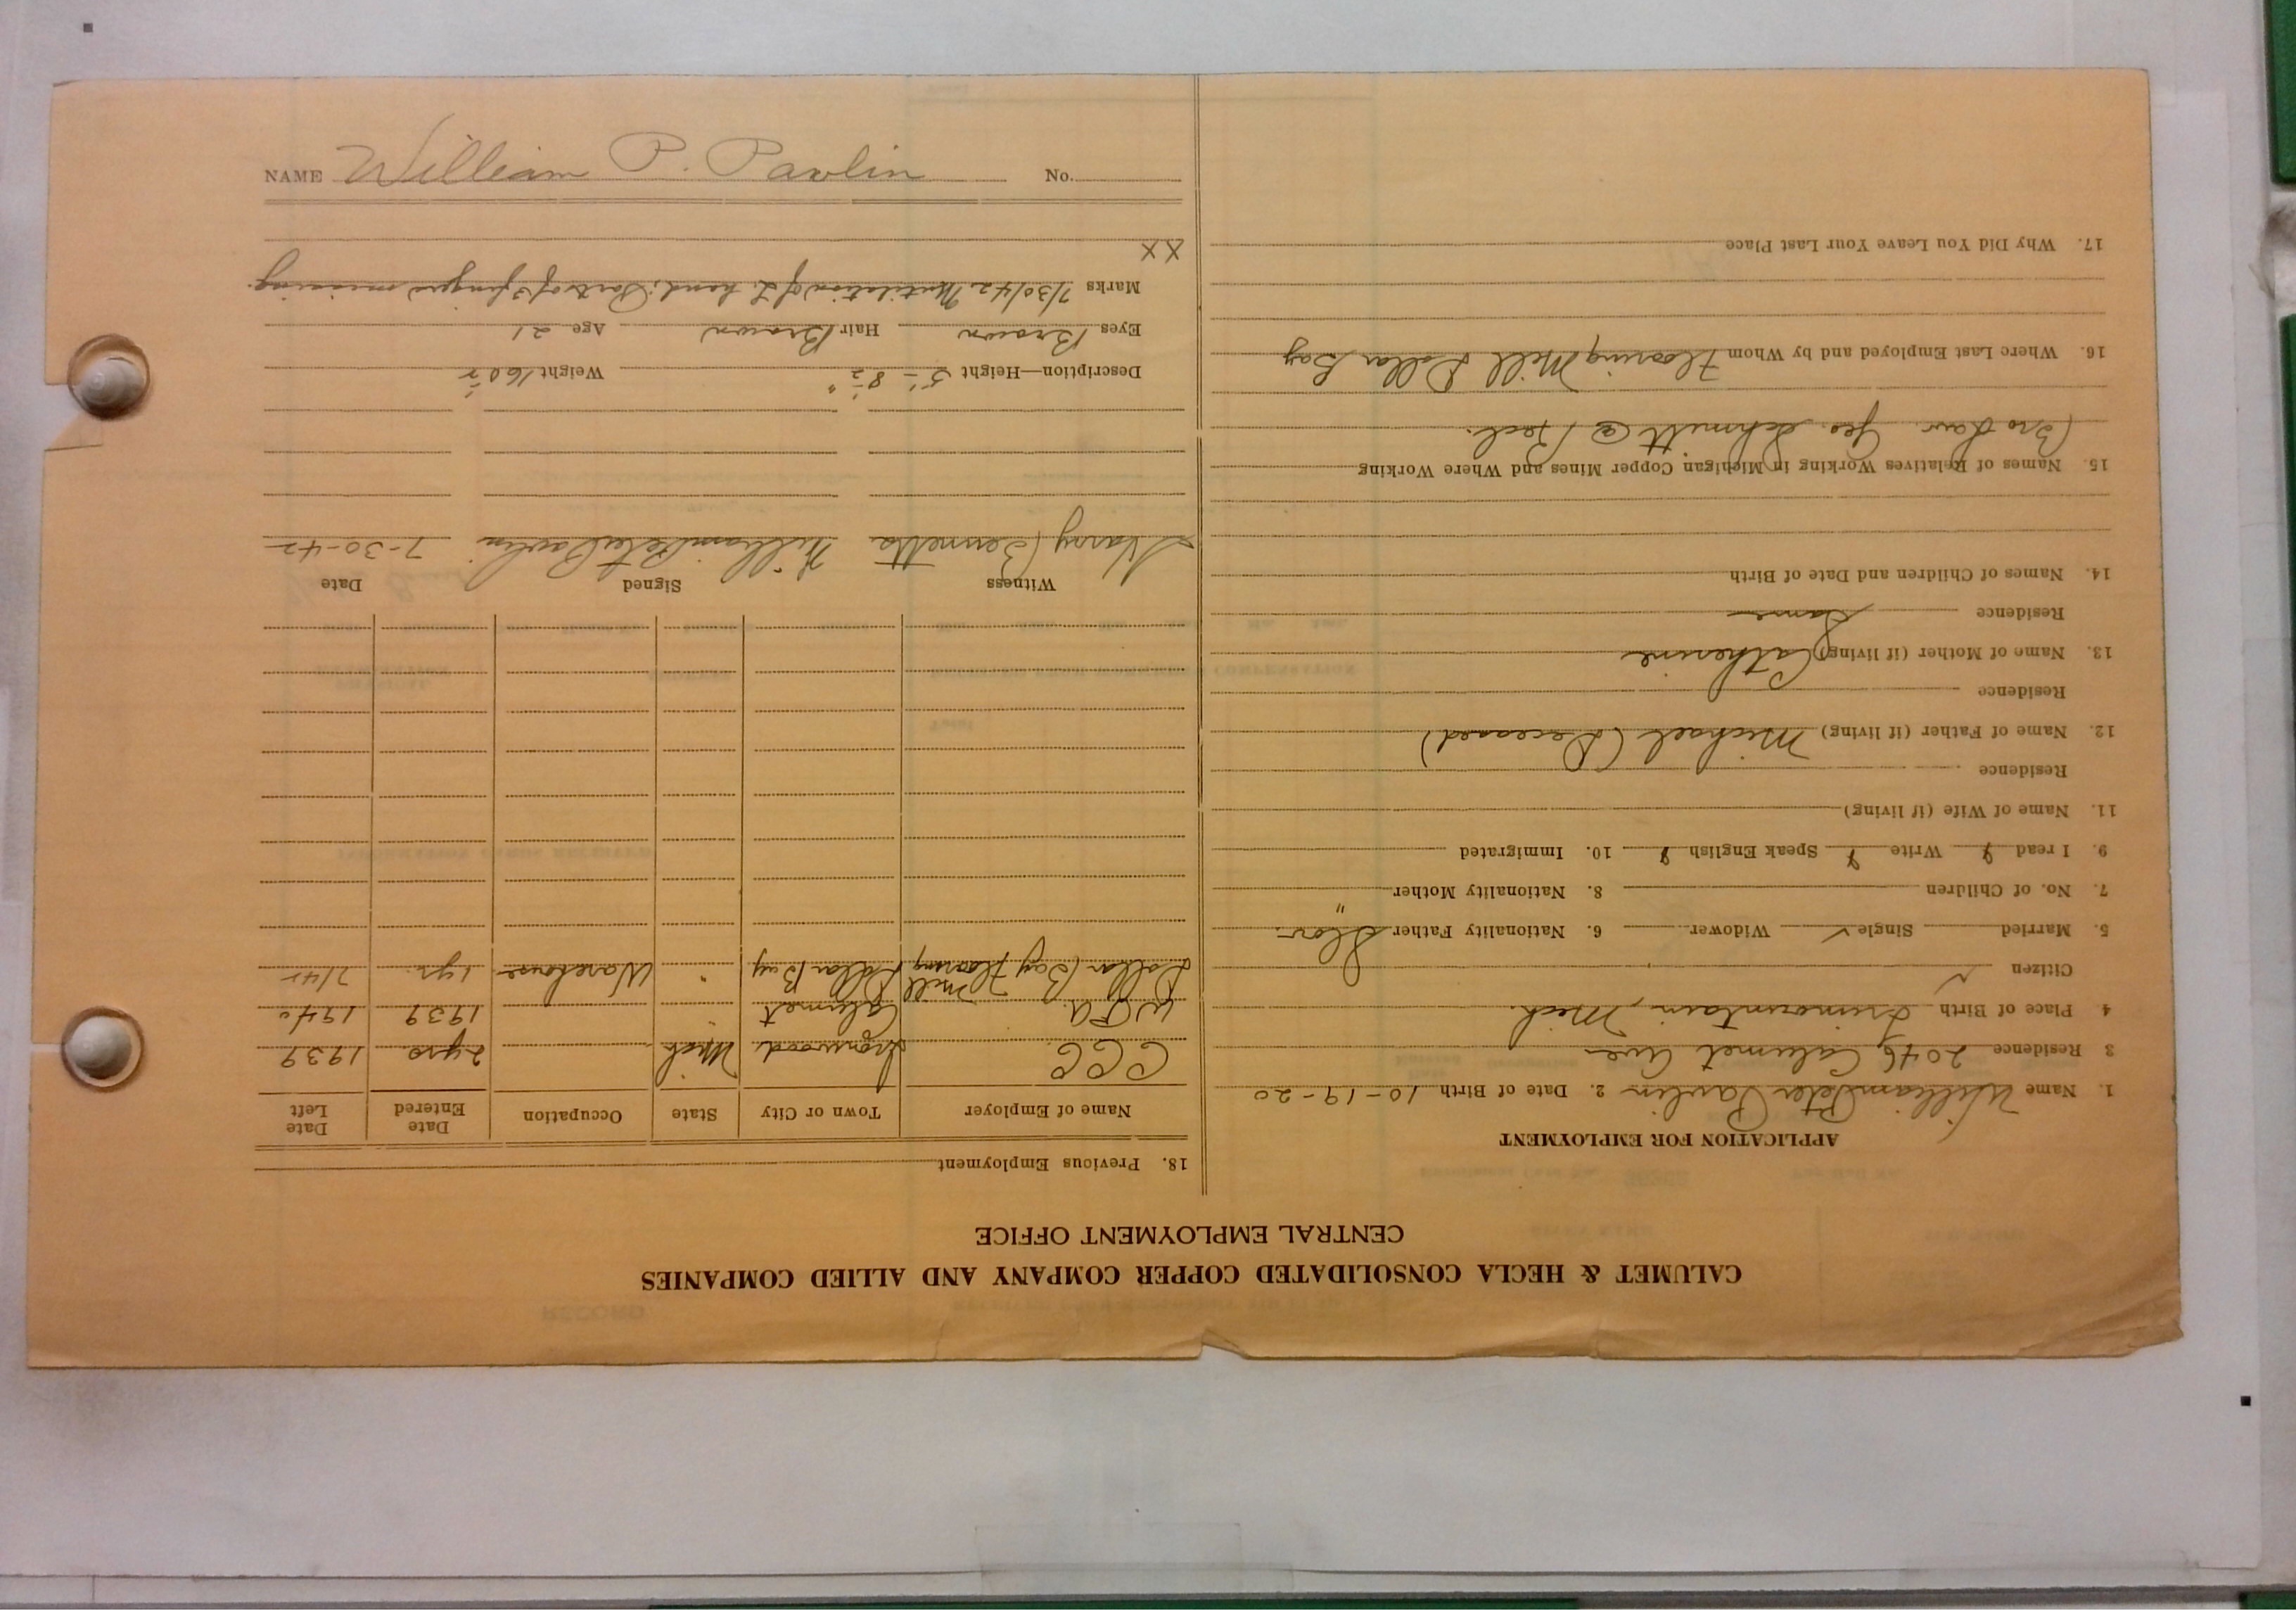 CALUMET & HECLA CONSOLIDATED COPPER COMPANY AND ALLIED COMPANIES
CENTRAL EMPLOYMENT OFFICE
APPLICATION FOR EMPLOYMENT
1. Name William Peter Pavlin 2. Date of Birth 10-19-20
3 Residence 2046 Calumet Ave
4 Place of Birth Trimountain, Mich.
Citizen ✓
5. Married Single ✓ Widower 6. Nationality Father Slov.
7. No. of Children 8. Nationality Mother "
9. I read Write Speak English 10. Immigrated
11. Name of Wife (if living)
Residence
12. Name of Father (if living) Michael (Deceased)
Residence
13. Name of Mother (if living) Catherine
Residence Same
14. Names of Children and Date of Birth
15. Names of Relatives Working in Michigan Copper Mines and Where Working
Bro Law Geo. Schmitt @
16. Where Last Employed and by Whom Flooring Mill Dollar Bay
17. Why Did You Leave Your Last Place
18. Previous Employment
Name of Employer Town or City State Occupation Date Entered Date Left
CCC Ironwood Mich 2 yrs. 1939
Calumet " 1939 1940
Dollar Bay Flooring Mill Dollar Bay " Warehouse 1 yr. 7/42
Witness Signed Date
Harry Bennetts William Peter Pavlin 7-30-42
Description—Height 5' - 8 1/2" Weight 160
Eyes Brown Hair Brown Age 21
Marks 7/30/42 Mutilation of L. hand. Parts of 3 fingers missing.
XX
NAME William P. Pavlin No.
RECORD